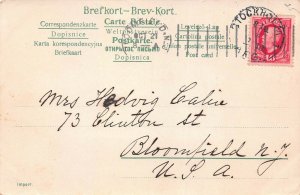 Brefkort–Brev-Kort.
Carte Postale
Correspondenzkarte
Dopisnice
Karta korespondencyjna
Briefkaart
Weltpostverein
Postkarte
Dopisnica
Levelező-lap
Cartolina postale
Union postale universelle
Post card
STOCKHOLM
OCT 21
Mrs Hedvig Calie
73 Clinton St
Bloomfield N.J.
U.S.A.
Import